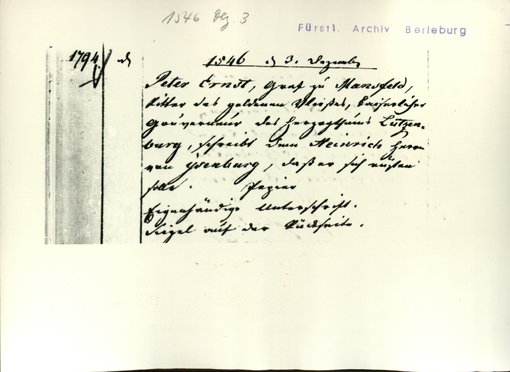 1546 Dez 3
Fürstl. Archiv Berleburg
1794. d 1546 d 3. Dezember
Peter Ernst, Graf zu Mansfeld,
Ritter des goldenen Vließes, kaiserlicher
Gouverneur des Herzogthums Lutzen-
burg, schreibt dem Heinrich Herrn
von Isenburg, daß er sich rüsten
solle. Papier
Eigenhändige Unterschrift.
Siegel auf der Rückseite.